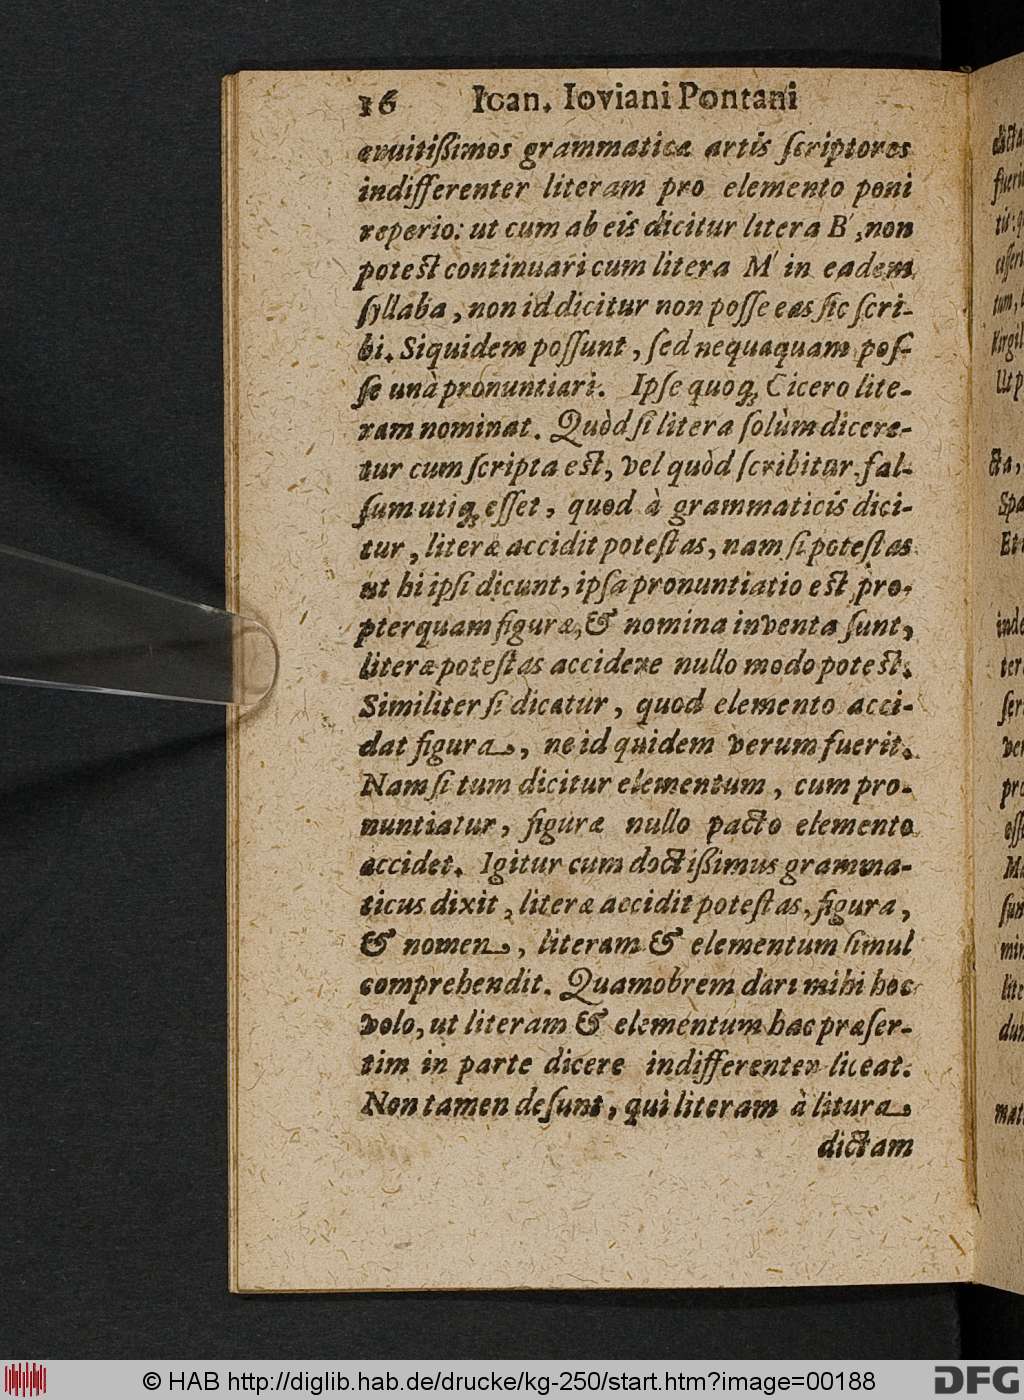 16 Ioan. Ioviani Pontani
acutißimos grammaticæ artis ſcriptores
indifferenter literam pro elemento poni
reperio: ut cum ab eis dicitur litera B, non
poteſt continuari cum litera M in eadem
ſyllaba, non id dicitur non poſſe eas ſic ſcri-
bi. Siquidem poſſunt, ſed nequaquam poſ-
ſe unà pronuntiari. Ipſe quoq; Cicero lite-
ram nominat. Quòd ſi litera ſolùm dicere-
tur cum ſcripta eſt, vel quòd ſcribitur, fal-
ſum utiq; eſſet, quod à grammaticis dici-
tur, literæ accidit poteſtas, nam ſi poteſtas
ut hi ipſi dicunt, ipſa pronuntiatio eſt, pro-
pter quam figuræ, & nomina inventa ſunt,
literæ poteſtas accidere nullo modo poteſt.
Similiter ſi dicatur, quod elemento acci-
dat figura, ne id quidem verum fuerit.
Nam ſi tum dicitur elementum, cum pro-
nuntiatur, figuræ nullo pacto elemento
accidet. Igitur cum doctißimus gramma-
ticus dixit, literæ accidit poteſtas, figura,
& nomen, literam & elementum ſimul
comprehendit. Quamobrem dari mihi hoc
volo, ut literam & elementum hac præſer-
tim in parte dicere indifferenter liceat.
Non tamen deſunt, qui literam à litura
dictam
© HAB http://diglib.hab.de/drucke/kg-250/start.htm?image=00188
DFG